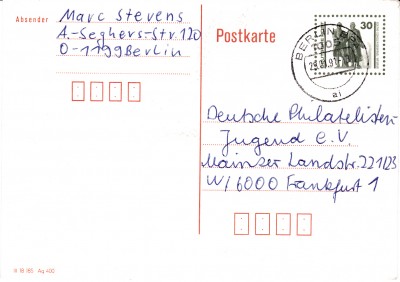 Absender
Marc Stevens
A.-Seghers-Str. 120
O-1199 Berlin
Postkarte
30
BERLIN
Deutsche Philatelisten-
Jugend e.V.
Mainzer Landstr. 221/23
W/6000 Frankfurt 1
III 18 185 Ag 400